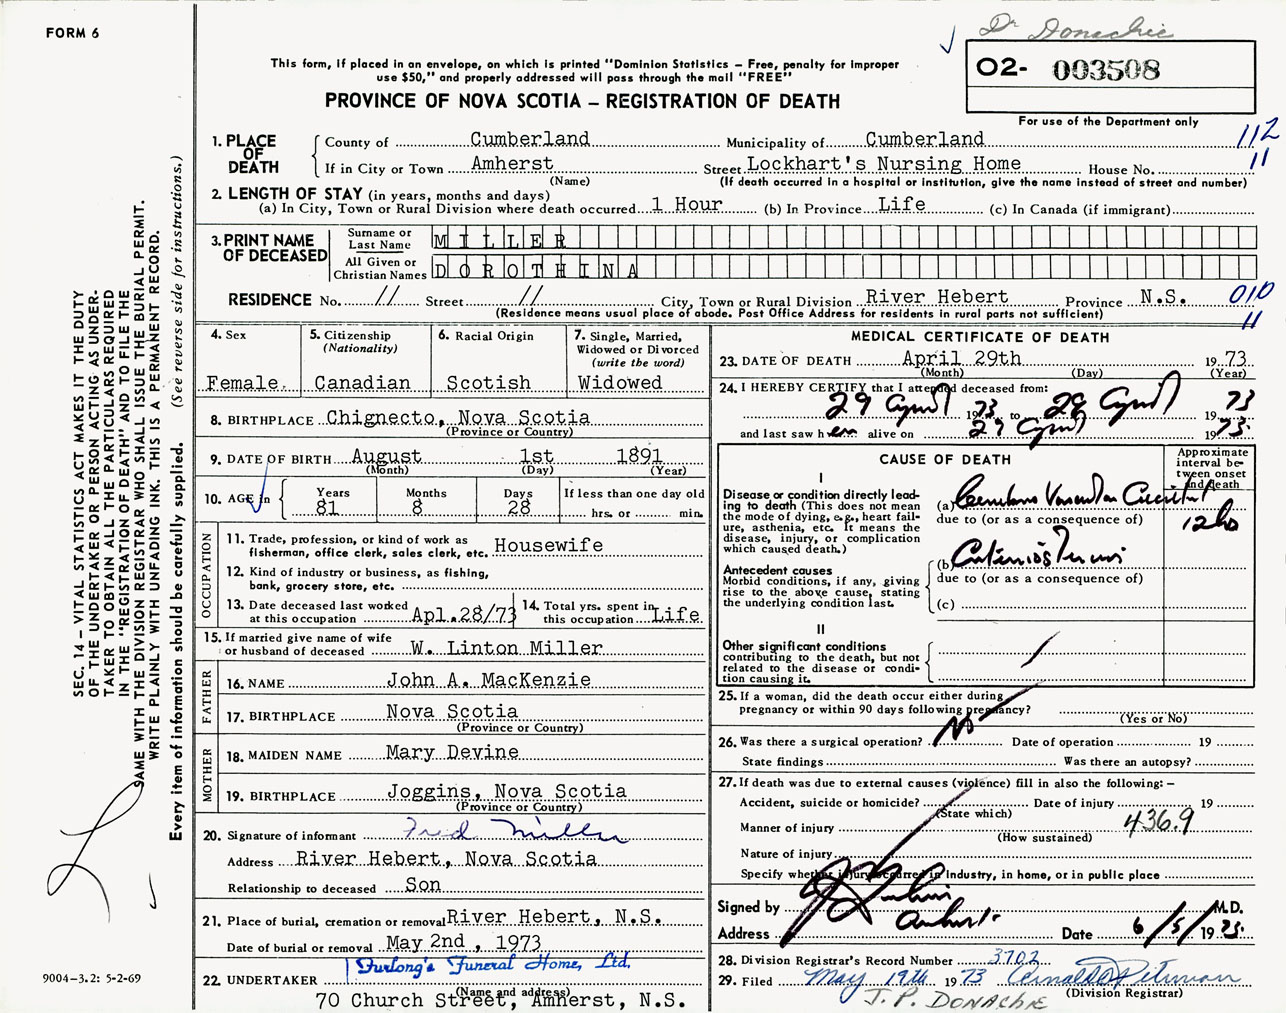 FORM 6
Dr Donachie
O2- 003508
For use of the Department only
This form, if placed in an envelope, on which is printed "Dominion Statistics – Free, penalty for improper
use $50," and properly addressed will pass through the mail "FREE"
PROVINCE OF NOVA SCOTIA – REGISTRATION OF DEATH
1. PLACE OF DEATH
County of Cumberland Municipality of Cumberland 112
If in City or Town Amherst Street Lockhart's Nursing Home House No. 11
(Name) (If death occurred in a hospital or institution, give the name instead of street and number)
2. LENGTH OF STAY (in years, months and days)
(a) In City, Town or Rural Division where death occurred 1 Hour (b) In Province Life (c) In Canada (if immigrant)
3. PRINT NAME OF DECEASED
Surname or Last Name MILLER
All Given or Christian Names DOROTHINA
RESIDENCE No. // Street // City, Town or Rural Division River Hebert Province N.S. 010
(Residence means usual place of abode. Post Office Address for residents in rural parts not sufficient) 11
4. Sex
Female
5. Citizenship (Nationality)
Canadian
6. Racial Origin
Scotish
7. Single, Married, Widowed or Divorced (write the word)
Widowed
8. BIRTHPLACE Chignecto, Nova Scotia
(Province or Country)
9. DATE OF BIRTH August 1st 1891
(Month) (Day) (Year)
10. AGE in
Years Months Days If less than one day old
81 8 28 hrs. or min.
OCCUPATION
11. Trade, profession, or kind of work as
fisherman, office clerk, sales clerk, etc. Housewife
12. Kind of industry or business, as fishing,
bank, grocery store, etc.
13. Date deceased last worked
at this occupation Apl.28/73
14. Total yrs. spent in
this occupation Life
15. If married give name of wife
or husband of deceased W. Linton Miller
FATHER
16. NAME John A. MacKenzie
17. BIRTHPLACE Nova Scotia
(Province or Country)
MOTHER
18. MAIDEN NAME Mary Devine
19. BIRTHPLACE Joggins, Nova Scotia
(Province or Country)
20. Signature of informant Fred Miller
Address River Hebert, Nova Scotia
Relationship to deceased Son
21. Place of burial, cremation or removal River Hebert, N.S.
Date of burial or removal May 2nd, 1973
22. UNDERTAKER Furlong's Funeral Home, Ltd.
(Name and address)
70 Church Street, Amherst, N.S.
MEDICAL CERTIFICATE OF DEATH
23. DATE OF DEATH April 29th 1973
(Month) (Day) (Year)
24. I HEREBY CERTIFY that I attended deceased from:
29 April 1973 to 29 April 1973
and last saw her alive on 29 April 1973
CAUSE OF DEATH
Approximate interval between onset and death
I
Disease or condition directly leading to death (This does not mean the mode of dying, e.g., heart failure, asthenia, etc. It means the disease, injury, or complication which caused death.)
(a) Cerebro Vascular Accident 12 hrs
due to (or as a consequence of)
Antecedent causes
Morbid conditions, if any, giving rise to the above cause, stating the underlying condition last.
(b)
due to (or as a consequence of)
(c)
II
Other significant conditions
contributing to the death, but not related to the disease or condition causing it.
25. If a woman, did the death occur either during
pregnancy or within 90 days following pregnancy?
(Yes or No)
26. Was there a surgical operation? No Date of operation 19
State findings Was there an autopsy?
27. If death was due to external causes (violence) fill in also the following: –
Accident, suicide or homicide? Date of injury 19
(State which)
Manner of injury 436.9
(How sustained)
Nature of injury
Specify whether injury occurred in industry, in home, or in public place
Signed by M.D.
Address Amherst Date 6/5/1973
28. Division Registrar's Record Number 3702
29. Filed May 19th 1973
(Division Registrar)
J. P. DONACHIE
SEC. 14 – VITAL STATISTICS ACT MAKES IT THE DUTY
OF THE UNDERTAKER OR PERSON ACTING AS UNDER-
TAKER TO OBTAIN ALL THE PARTICULARS REQUIRED
IN THE "REGISTRATION OF DEATH" AND TO FILE THE
SAME WITH THE DIVISION REGISTRAR WHO SHALL ISSUE THE BURIAL PERMIT.
WRITE PLAINLY WITH UNFADING INK. THIS IS A PERMANENT RECORD.
Every item of information should be carefully supplied. (See reverse side for instructions.)
9004–3.2: 5-2-69